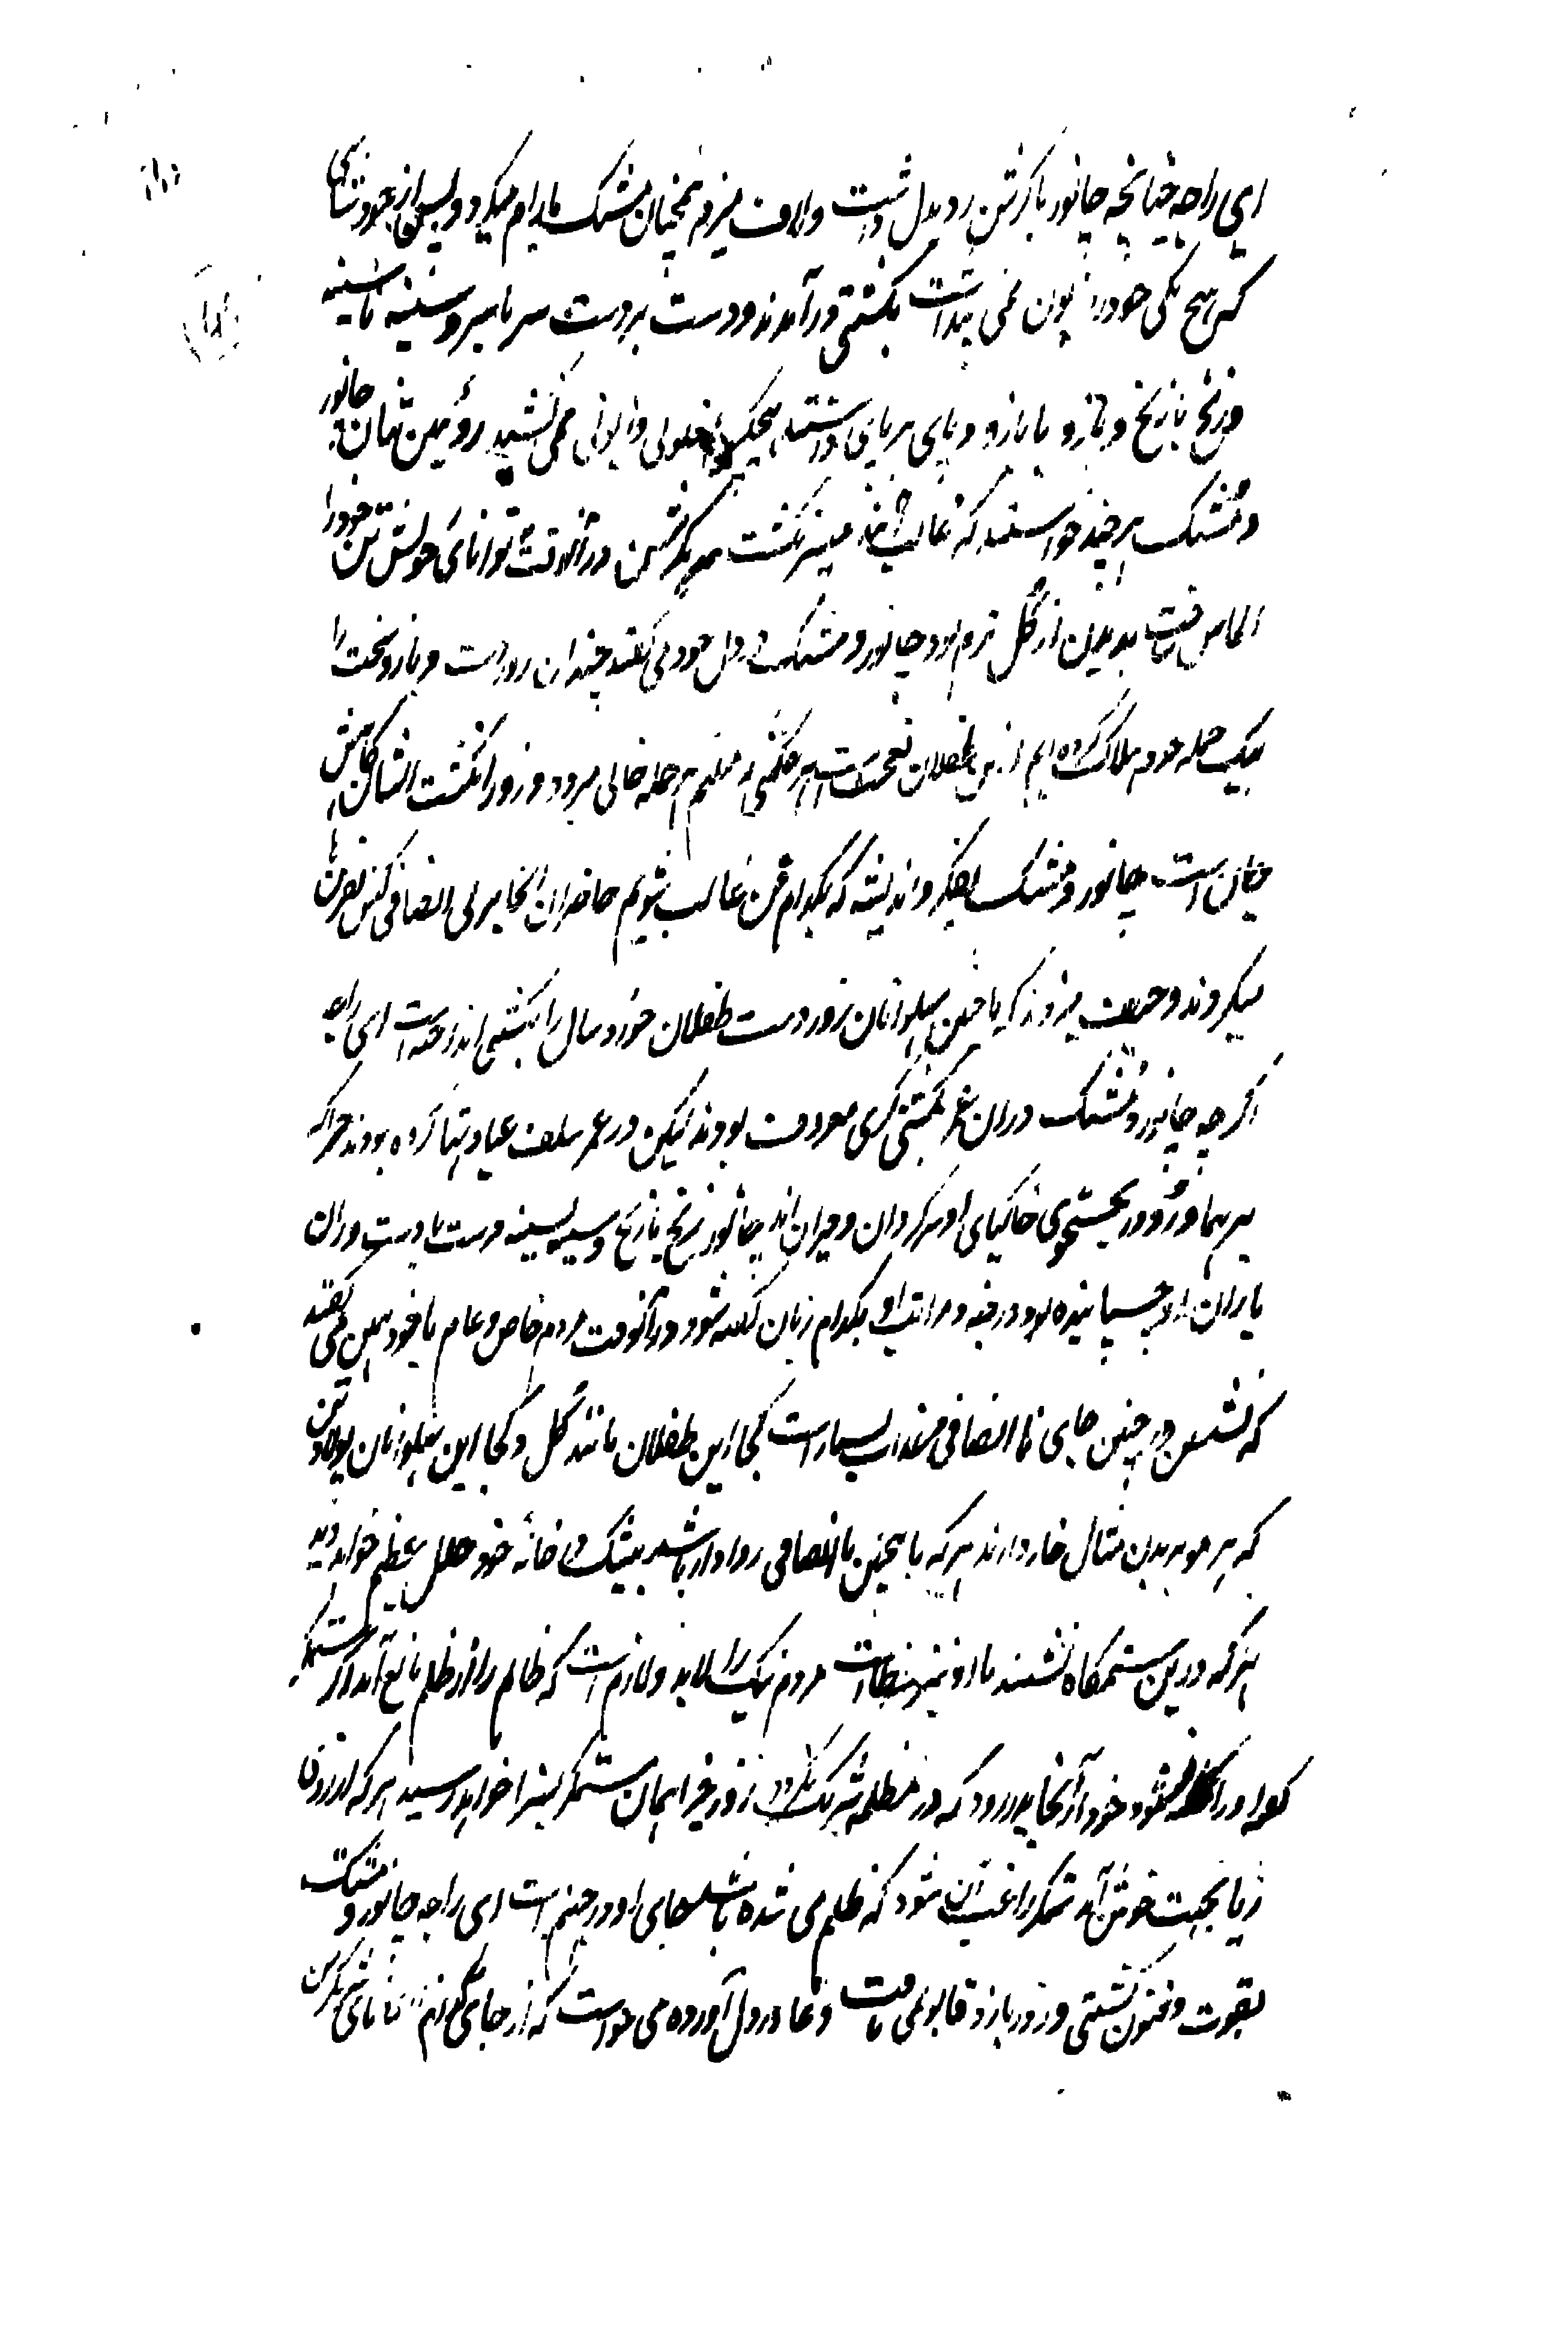 ای راجه چنانچه چانور با کرشن رد بدل داشت و لاف میزد همچنان مشتک با رام میکرد و لیکن از خود شان
کس هیچ یکی خود را زبون نمی پنداشت بکشتی در آمدند و دست بردست سر با سر و سینه با سینه
و زنخ با زنخ و بازو با بازو و پای بر پای داشتند هیچیک نمی کشید روئین تنان چانور
و مشتک هر چند خواستند که غالب میسر نگشت سریکرشن در آنوقت توانائی خویش تن خود را
الماس بدیدن از گل نرم بود چانور و مشتک در دل خود می گفتند چندان زبردست و بازو سخت را
بیک حمله خود هلاک کرده ایم ازین طفلان تعجب است هر حکمتی که میکنم هر حمله خالی میرود و زور انگشت ایشان
چنان است چانور و مشتک بفکر و اندیشه که بکدام فن غالب شویم حاضران آنجا بر بی انصافی کنس نفرین
میکردند و حیف میزدند که با چنین پهلوانان زور دست طفلان خورد سال را بکشتی انداخته است ای راجه
اگرچه چانور و مشتک دران عمر بکشتی گری معروف بودند لیکن در عمر سلف عبادتها کرده بودند چرا که
برهما و رودر بجستجوی خاکپای او سرگردان و حیران اند چانور زنخ با زنخ و سینه بسینه دست با دست و ران
با ران او چسپانیده بود درجه و مراتب او بکدام زبان گفته شود در آنوقت مردم خاص و عام با خود همین می گفتند
که نشستن در چنین جای نا انصافی عذاب بسیار است کجا این طفلان مانند گل و کجا این پهلوانان پولاد تن
که هر مو بر بدن مثال خار دارند هر که با همچنین نا انصافی روادار باشد بیشک در خانه خود خلل عظیم خواهد دید
هر که درین ستمگاه نشیند با او نیز خطا است مردم نیک را لابد و لازم است که ظالم را از ظلم مانع آید اگر ستمگر
خود از آنجا بدر رود که در مظلمه شریک نگردد زود خیر ایمان ستمگر بسزا خواهد رسید هر که از زدن
زیبا بجهت خوش آمد ستمگر راغب آن شود که ظلم می شده باشد جای او در جهنم است ای راجه چانور و مشتک
بقوت و فنون کشتی و زور بازو قابو نمی یافت و دغا در دل آورده می خواست که از جای گیرم